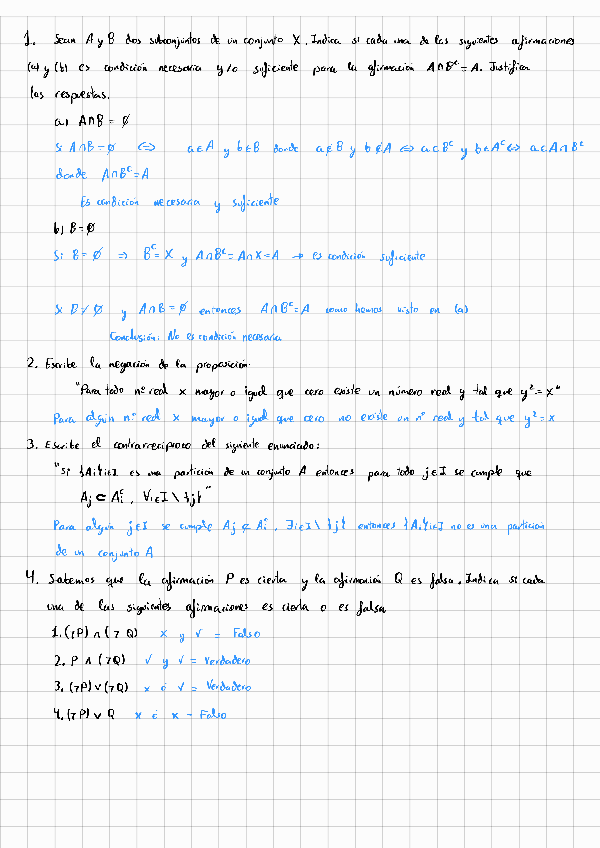 1. Sean A y B dos subconjuntos de un conjunto X. Indica si cada una de las siguientes afirmaciones
(a) y (b) es condición necesaria y/o suficiente para la afirmación A∩Bᶜ = A. Justifica
las respuestas.
a) A∩B = ∅
Si A∩B = ∅ ⇔ a∈A y b∈B donde a∉B y b∉A ⇔ a∈Bᶜ y b∈Aᶜ ⇔ a∈A∩Bᶜ
donde A∩Bᶜ = A
Es condición necesaria y suficiente
b) B = ∅
Si B = ∅ ⇒ Bᶜ = X y A∩Bᶜ = A∩X = A → es condición suficiente
Si B ≠ ∅ y A∩B = ∅ entonces A∩Bᶜ = A como hemos visto en (a)
Conclusión: No es condición necesaria
2. Escribe la negación de la proposición:
"Para todo nº real x mayor o igual que cero existe un número real y tal que y² = x"
Para algún nº real x mayor o igual que cero no existe un nº real y tal que y² = x
3. Escribe el contrarrecíproco del siguiente enunciado:
"Si {Ai}i∈I es una partición de un conjunto A entonces para todo j∈I se cumple que
Aj ⊂ Aiᶜ, ∀i∈I \ {j}"
Para algún j∈I se cumple Aj ⊄ Aiᶜ, ∃i∈I \ {j} entonces {Ai}i∈I no es una partición
de un conjunto A
4. Sabemos que la afirmación P es cierta y la afirmación Q es falsa. Indica si cada
una de las siguientes afirmaciones es cierta o es falsa
1. (¬P) ∧ (¬Q) x y ✓ = Falso
2. P ∧ (¬Q) ✓ y ✓ = Verdadero
3. (¬P) ∨ (¬Q) x ó ✓ = Verdadero
4. (¬P) ∨ Q x ó x = Falso